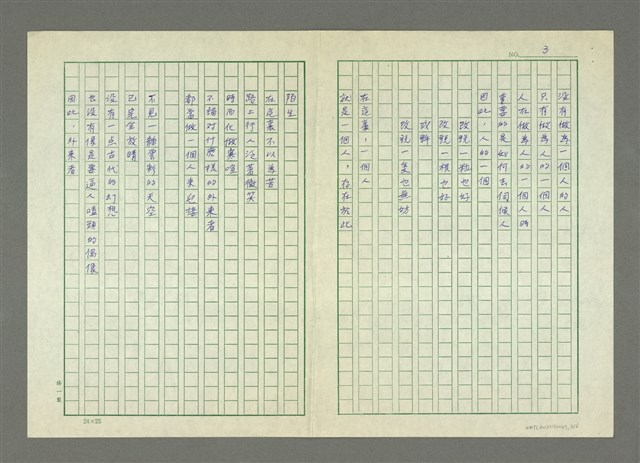 NO. 3
沒有做為一個人的人
只有做為人的一個人
人在做為人的一個人時
重要的是如何去伺候人
因此，人的一個
改說一粒也好
改說一根也好
或群
改說一隻也無妨
在這裏，一個人
就是一個人，存在於此
陌生
在這裏不以為苦
路上行人泛著微笑
時而化做寒喧
不論对什麼樣的外來者
都當做一個人來迎接
不見一輛電動的天空
已完全放晴
沒有一点古代的幻想
也沒有像是要逼人嗑頭的偶像
因此，外來者
24×25